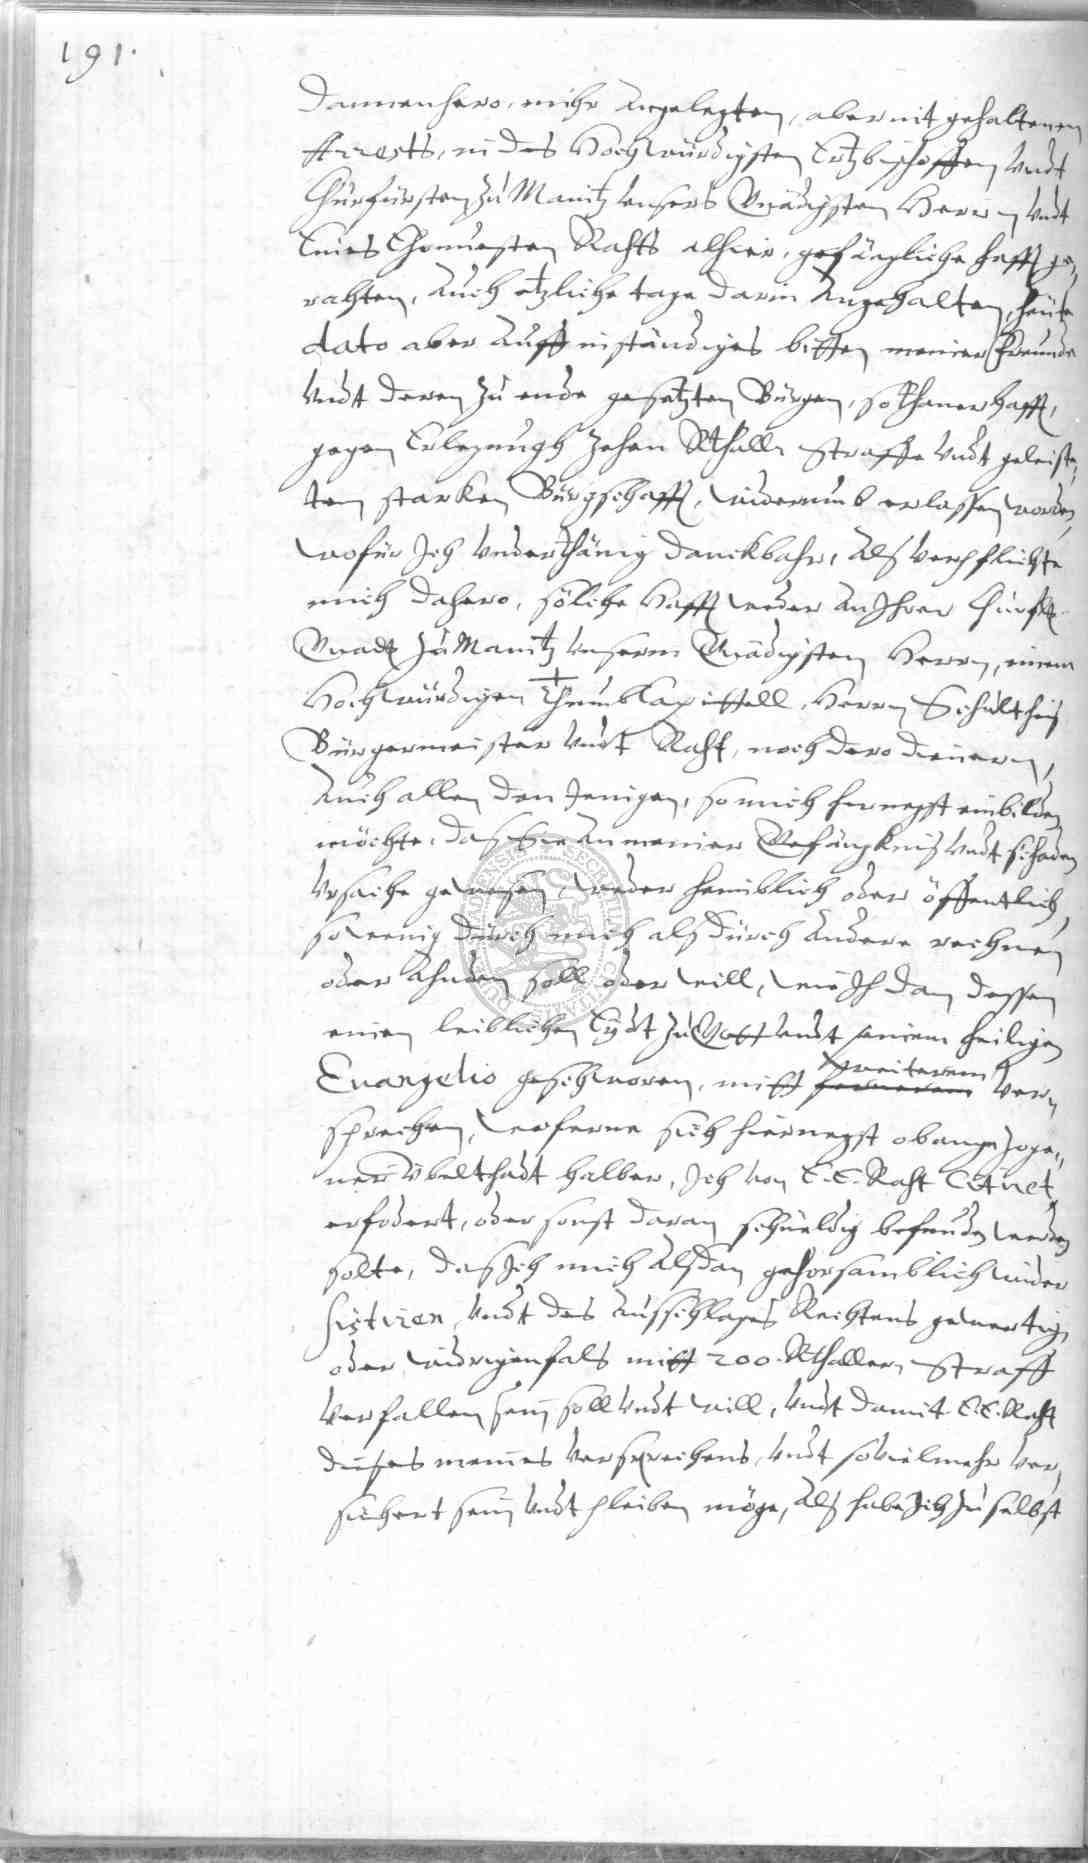 191.
Dannenhero, mihr angelegten, aber nit gehaltenen
Arrests, in des Hochwürdigsten Ertzbischoffen vndt
Churfürsten zu Maintz vnsers Gnädigsten Herrn vndt
Eines Ehrnuesten Rahts alhier, gefängliche hafft ge,
rahten, Auch etzliche tage darin Angehalten, heute
dato aber Auff inständiges bitten meiner Freunde
vndt deren zu ende gesetzten Bürgen, solthaner hafft,
gegen Erlegungh zehen Rthall. straffe vndt geleiste,
ten starken Bürgschafft, widerumb erlassen worden,
wofür Ich vnderthänig danckbahr, Alß verpflichte
mich dahero, solche Hafft weder an Ihrer Churfl.
Gnadt zu Maintz vnserm Gnädigsten Herrn, einem
Hochwürdigen Thumbkapittell, Herrn Schultheiß
Bürgermeister vndt Raht, noch dero dienern,
Auch allen den Jenigen, so mich hernegst einbilden
möchte, das Sie An meiner Gefängknis vndt schaden
Vrsache gewesen, weder heimblich oder öffentlich,
so wenig durch mich als durch Andere rechnen
oder Ahnden soll oder will, wie Ich dan dessen
einen leiblichen Eydt zu Gott vndt seinem heiligen
Euangelio geschworen, mitt fernerem weiterem Ver,
sprechen, woferne sich hiernegst obangezoge,
ner Vbelthadt halber, Ich von E. E. Raht Citiret
erfodert, oder sonst daran schueldig befunden werden
solte, das Ich mich Alsdan gehorsamblich wider
sistiren, vndt des Ausschlages Rechtens gewertig,
oder widrigenfals mitt 200. Rthallern straff
verfallen sein soll vndt will, vndt damit E. E. Raht
dieses meines Versprechens, vndt so viel mehr ver,
sichert sein vndt pleiben möge, Als habe Ich zu selbst